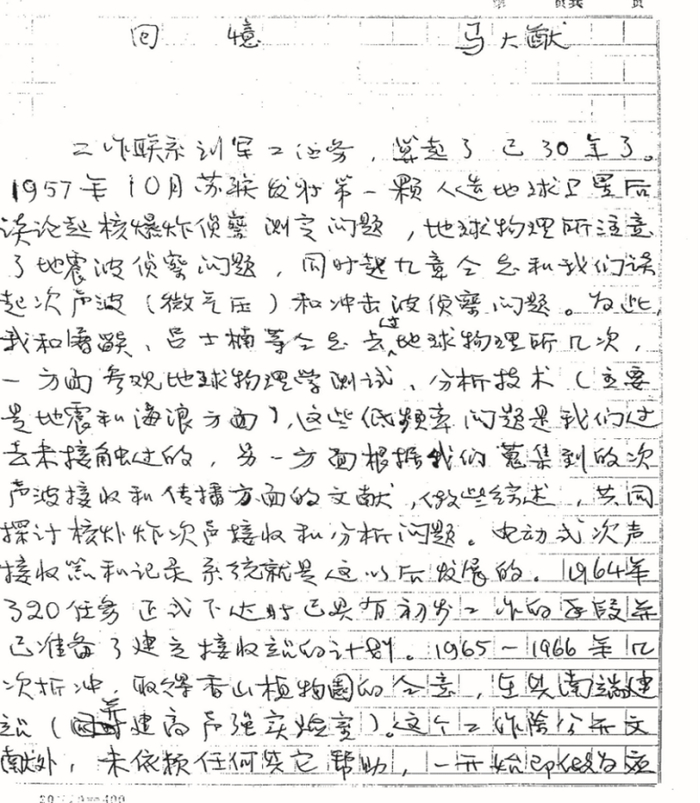 第 页共 页
回 憶 马大猷
工作联系到军工任务，算起了已30年了。
1957年10月苏联发射第一颗人造地球卫星后
谈论起核爆炸侦察测定问题，地球物理所注意
了地震波侦察问题，同时赵九章仝志和我们谈
起次声波（微气压）和冲击波侦察问题。为此，
我和 、吕士楠等仝志去过地球物理所几次，
一方面参观地球物理学测试、分析技术（主要
是地震和海浪方面），这些低频率问题是我们过
去未接触过的，另一方面根据我们蒐集到的次
声波接收和传播方面的文献，做些综述，共同
探讨核爆炸次声接收和分析问题。电动式次声
接收器和记录系统就是这以后发展的。1964年
320任务正式下达时已具有初步工作的手段并
已准备了建立接收站的计划。1965－1966年几
次折冲，取得香山植物园的仝意，在其南端建
站（ 并建高声强实验室）。这个工作除公开文
献外，未依赖任何其它帮助，一开始即